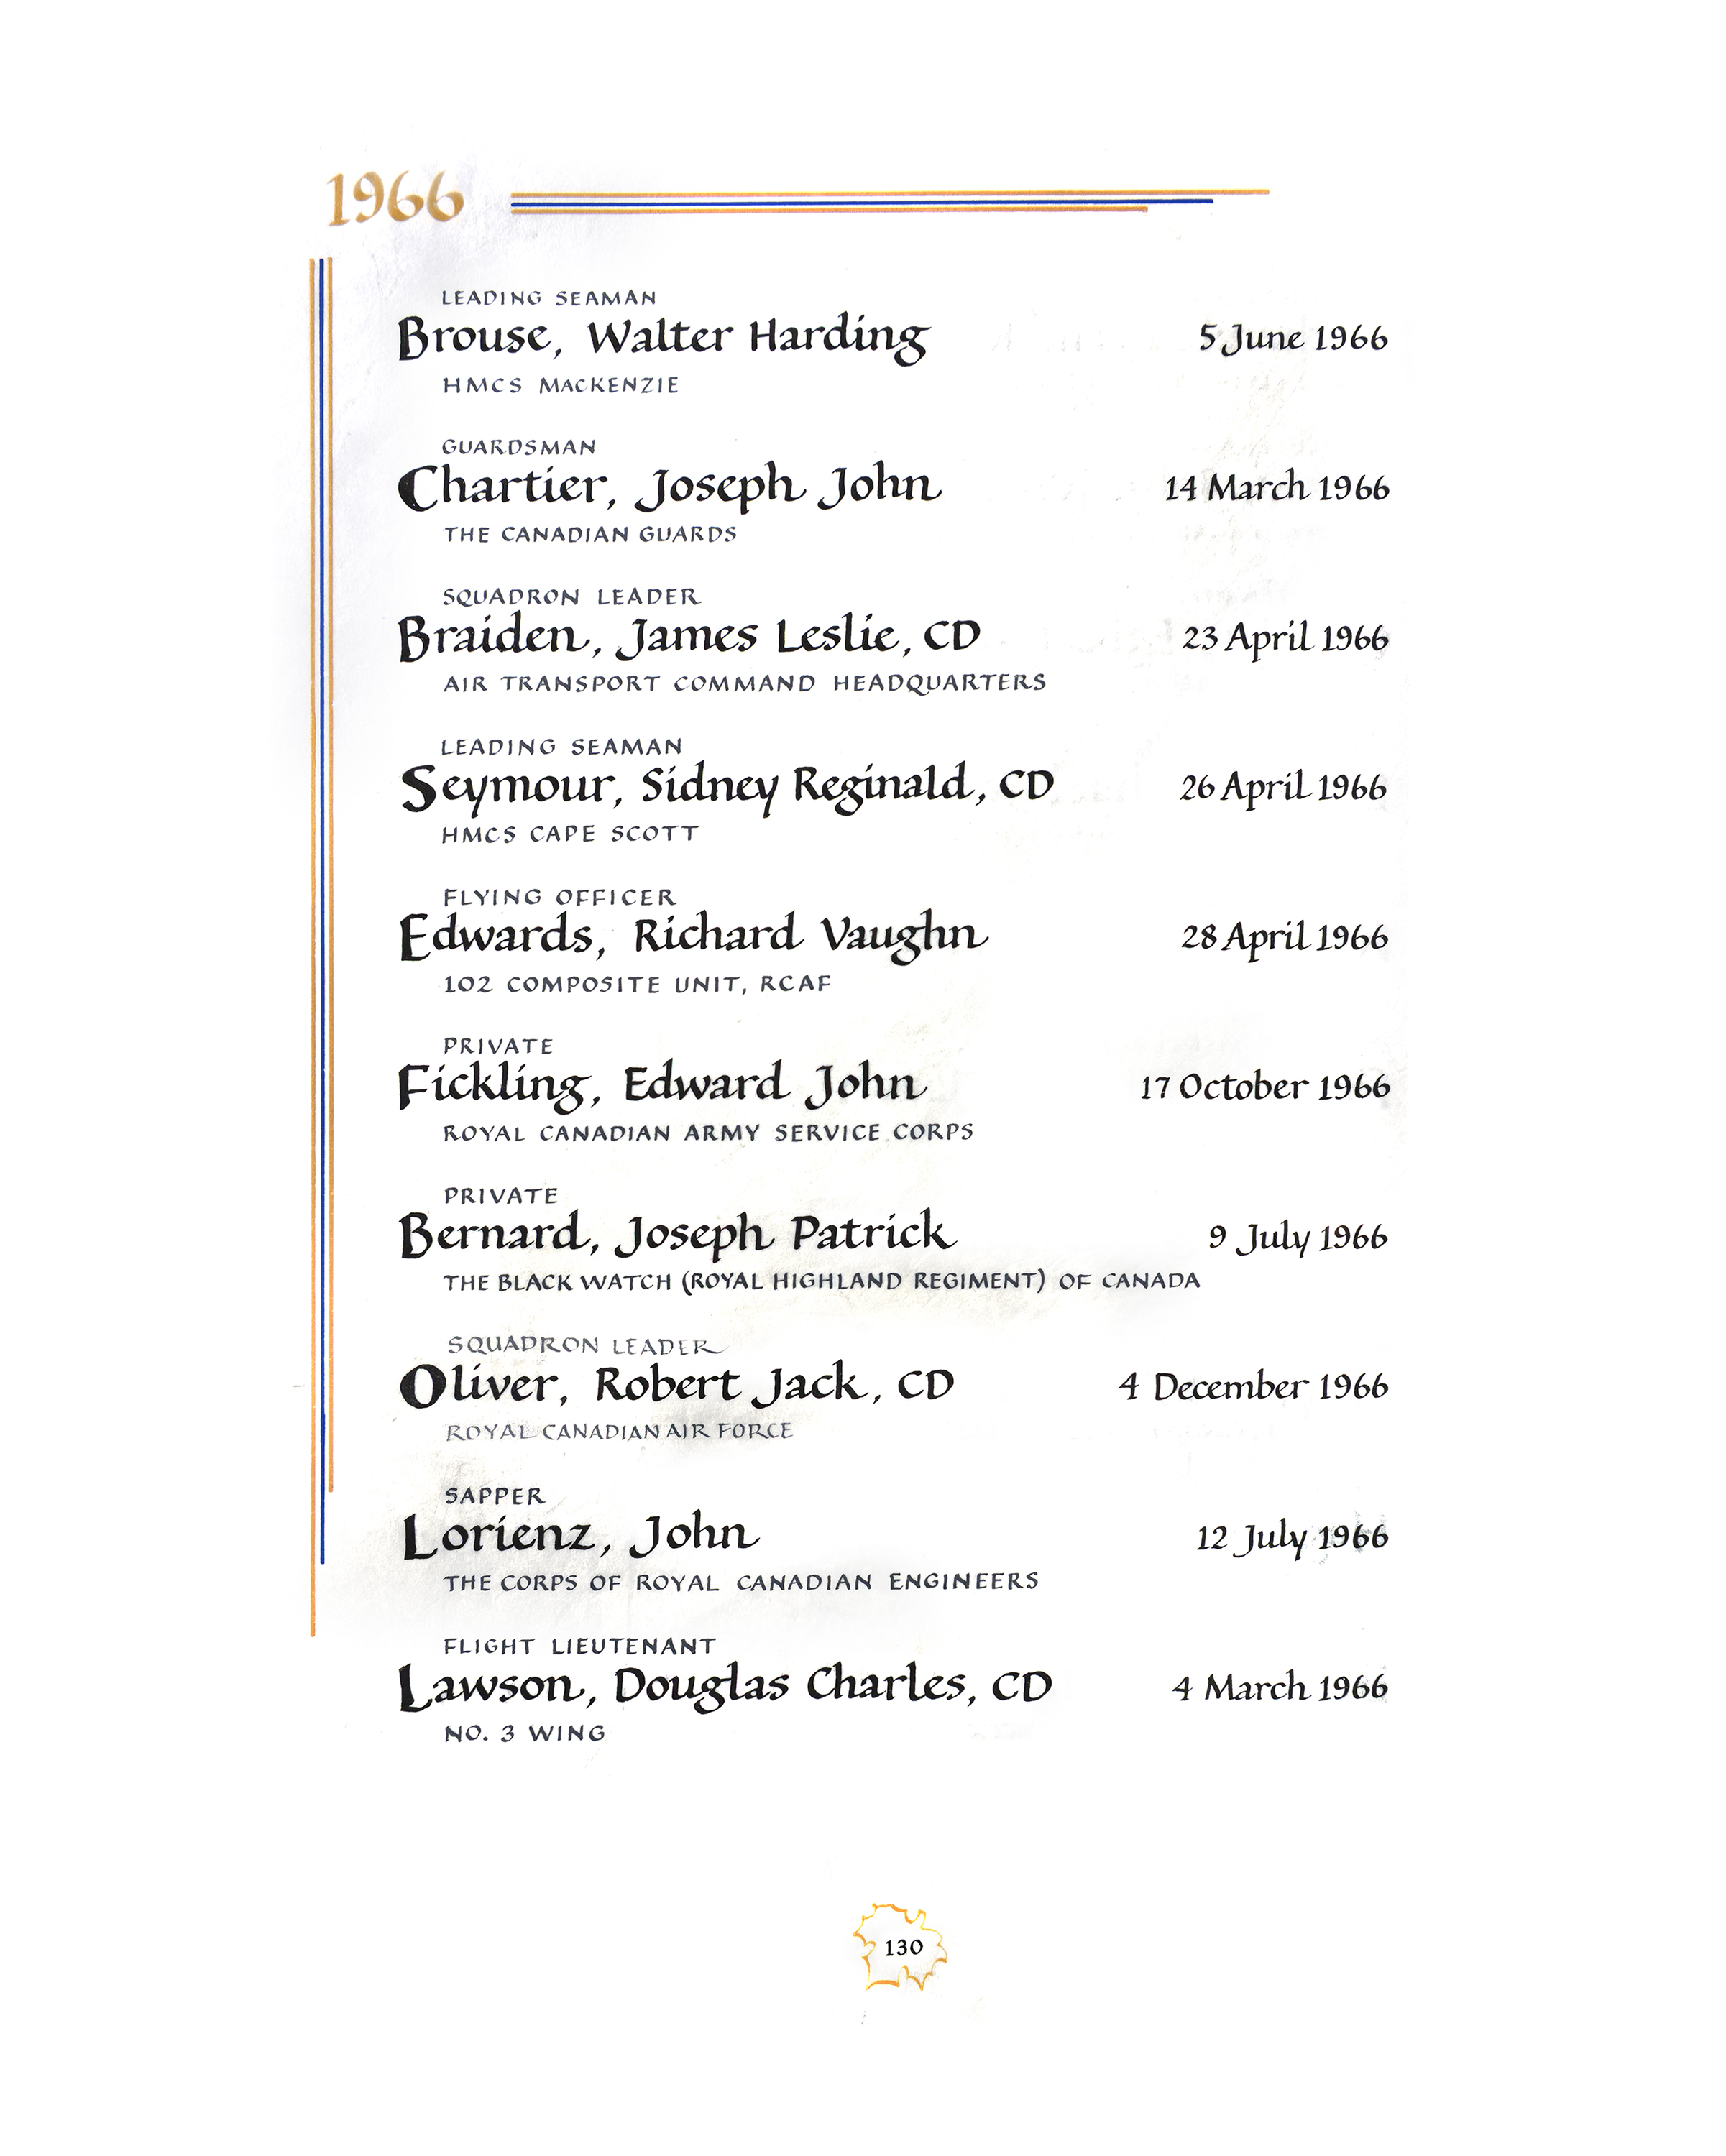 1966
LEADING SEAMAN
Brouse, Walter Harding 5 June 1966
HMCS MACKENZIE
GUARDSMAN
Chartier, Joseph John 14 March 1966
THE CANADIAN GUARDS
SQUADRON LEADER
Braiden, James Leslie, CD 23 April 1966
AIR TRANSPORT COMMAND HEADQUARTERS
LEADING SEAMAN
Seymour, Sidney Reginald, CD 26 April 1966
HMCS CAPE SCOTT
FLYING OFFICER
Edwards, Richard Vaughn 28 April 1966
102 COMPOSITE UNIT, RCAF
PRIVATE
Fickling, Edward John 17 October 1966
ROYAL CANADIAN ARMY SERVICE CORPS
PRIVATE
Bernard, Joseph Patrick 9 July 1966
THE BLACK WATCH (ROYAL HIGHLAND REGIMENT) OF CANADA
SQUADRON LEADER
Oliver, Robert Jack, CD 4 December 1966
ROYAL CANADIAN AIR FORCE
SAPPER
Lorienz, John 12 July 1966
THE CORPS OF ROYAL CANADIAN ENGINEERS
FLIGHT LIEUTENANT
Lawson, Douglas Charles, CD 4 March 1966
NO. 3 WING
130